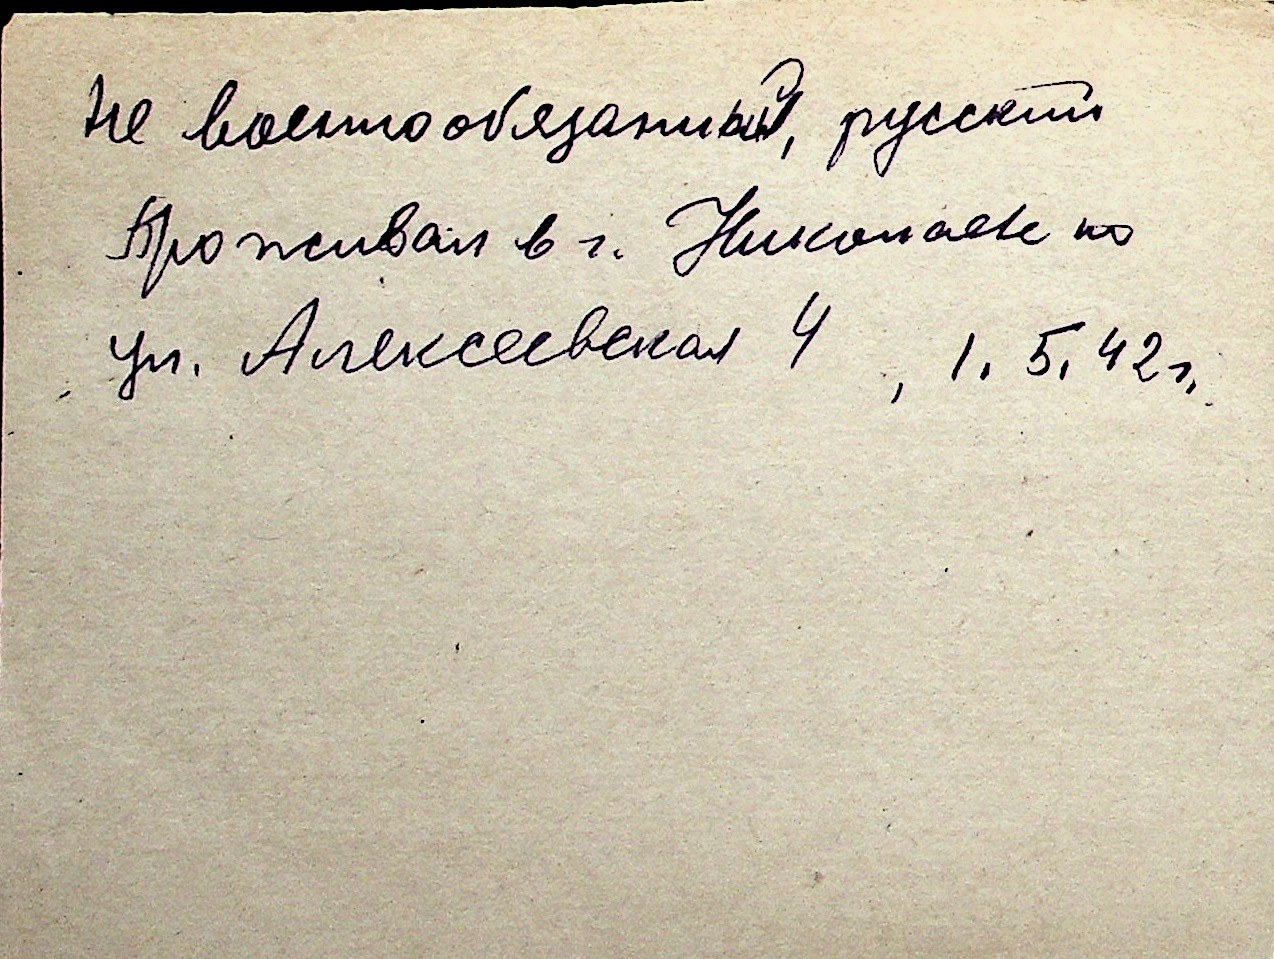 Не военнообязанный, русский
Проживал в г. Николаеве по
ул. Алексеевская 4, 1.5.42г.